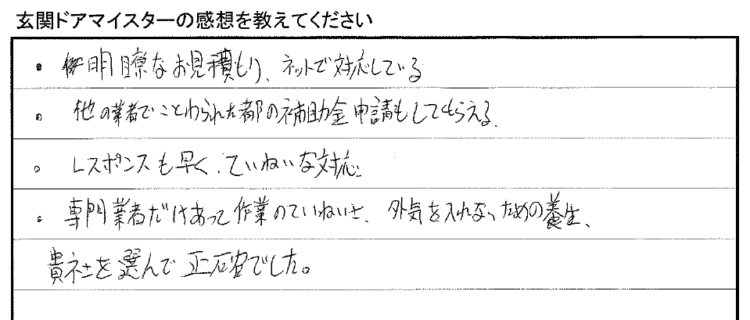 玄関ドアマイスターの感想を教えてください
・明瞭なお見積もり、ネットで対応している
・他の業者でことわられた都の補助金申請もしてもらえる。
・レスポンスも早く、ていねいな対応
・専門業者だけあって作業のていねいさ、外気を入れないための養生、
貴社を選んで正確でした。